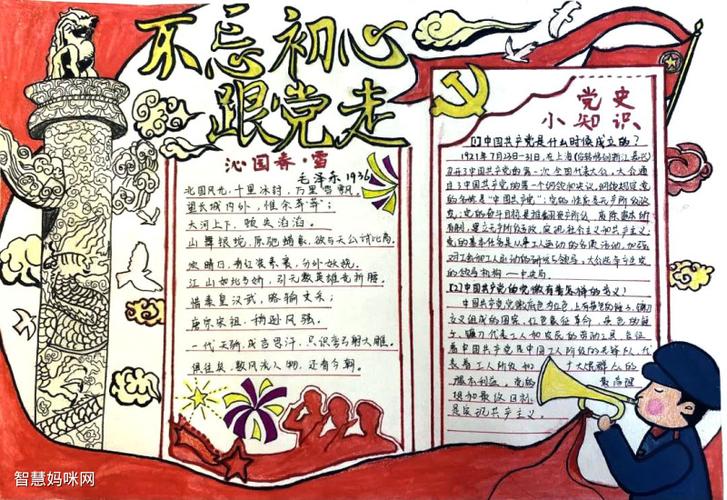 不忘初心
跟党走
沁园春·雪
毛泽东 1936
北国风光，千里冰封，万里雪飘。
望长城内外，惟余莽莽；
大河上下，顿失滔滔。
山舞银蛇，原驰蜡象，欲与天公试比高。
须晴日，看红装素裹，分外妖娆。
江山如此多娇，引无数英雄竞折腰。
惜秦皇汉武，略输文采；
唐宗宋祖，稍逊风骚。
一代天骄，成吉思汗，只识弯弓射大雕。
俱往矣，数风流人物，还看今朝。
党史
小知识
[1]中国共产党是什么时候成立的？
1921年7月23日—31日，在上海
召开中国共产党的第一次全国代表大会，大会通
过了中国共产党的第一个纲领和决议，纲领规定党
的名称是“中国共产党”；党的性质是无产阶级政
党；党的奋斗目标是推翻资产阶级，废除资本所
有制，建立无产阶级专政，实现社会主义和共产主义；
党的基本任务是从事工人运动的各项活动，加强
对工会和工人运动的研究与领导。大会选举产生党
的领导机构——中央局。
[2]中国共产党的党徽有着怎样的含义？
中国共产党党徽底色为红色，上有黄色的
义组成的图案，红色象征革命，黄色的锤
子、镰刀代表工人和农民的劳动工具，象征
着中国共产党是中国工人阶级的先锋队，代
表着工人阶级和广大人民群众的
根本利益，党的最高理
想和最终目标
是实现共产主义。
智慧妈咪网